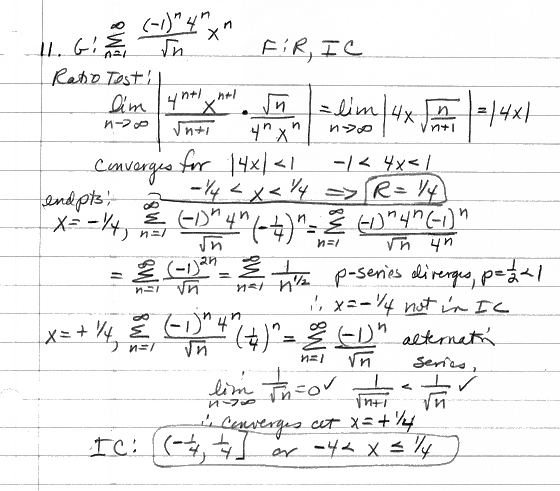 11. G: ∞ Σ n=1 (-1)^n 4^n / √n x^n F: R, IC
Ratio Test:
lim n->∞ | 4^{n+1} x^{n+1} / √(n+1) · √n / (4^n x^n) | = lim n->∞ | 4x √(n/(n+1)) | = |4x|
Converges for |4x| < 1 -1 < 4x < 1
-1/4 < x < 1/4 => R = 1/4
endpts:
x = -1/4, ∞ Σ n=1 (-1)^n 4^n / √n (-1/4)^n = ∞ Σ n=1 (-1)^n 4^n (-1)^n / (√n 4^n)
= ∞ Σ n=1 (-1)^{2n} / √n = ∞ Σ n=1 1 / n^{1/2} p-series diverges, p = 1/2 < 1
∴ x = -1/4 not in IC
x = + 1/4, ∞ Σ n=1 (-1)^n 4^n / √n (1/4)^n = ∞ Σ n=1 (-1)^n / √n alternatin
series,
lim n->∞ 1/√n = 0 ✓ 1/√(n+1) < 1/√n ✓
∴ converges at x = + 1/4
IC: (-1/4, 1/4] or -4 < x ≤ 1/4